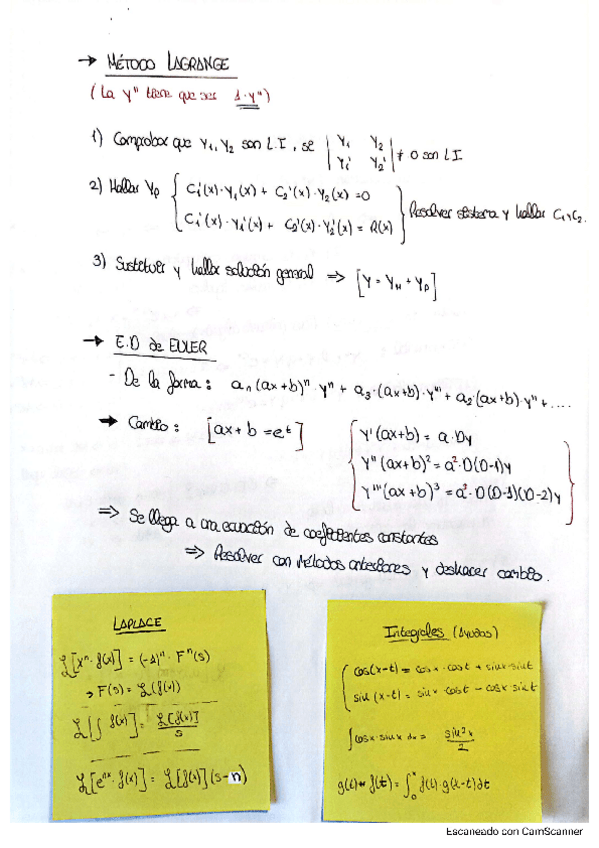 → MÉTODO LAGRANGE
(La y'' tiene que ser 1·y'')
1) Comprobar que y₁, y₂ son L.I, se | y₁ y₂ |
| y₁' y₂' | ≠ 0 son L.I.
2) Hallar yp { C₁'(x)·y₁(x) + C₂'(x)·y₂(x) = 0
C₁'(x)·y₁'(x) + C₂'(x)·y₂'(x) = R(x) } Resolver sistema y hallar C₁ y C₂.
3) Sustituir y hallar solución general ⇒ [y = yH + yp]
→ E.D de EULER
- De la forma: aₙ(ax+b)ⁿ·yⁿ + a₃·(ax+b)·y''' + a₂·(ax+b)·y'' + ....
→ Cambio: [ax+b = eᵗ]
{ y'(ax+b) = a·Dy
y''(ax+b)² = a²·D(D-1)y
y'''(ax+b)³ = a³·D(D-1)(D-2)y }
⇒ Se llega a una ecuación de coeficientes constantes
⇒ Resolver con Métodos anteriores y deshacer cambio.
LAPLACE
ℒ[xⁿ·f(x)] = (-1)ⁿ · Fⁿ(s)
→ F(s) = ℒ(f(x))
ℒ[∫ f(x)] = ℒ[f(x)]/s
ℒ[eⁿˣ·f(x)] = ℒ[f(x)](s-n)
Integrales (Ayudas)
{ cos(x-t) = cosx·cost + sinx·sint
sin(x-t) = sinx·cost - cosx·sint
∫cosx·sinx dx = sin²x/2
g(t) * f(t) = ∫₀ˣ f(t)·g(x-t)dt
Escaneado con CamScanner